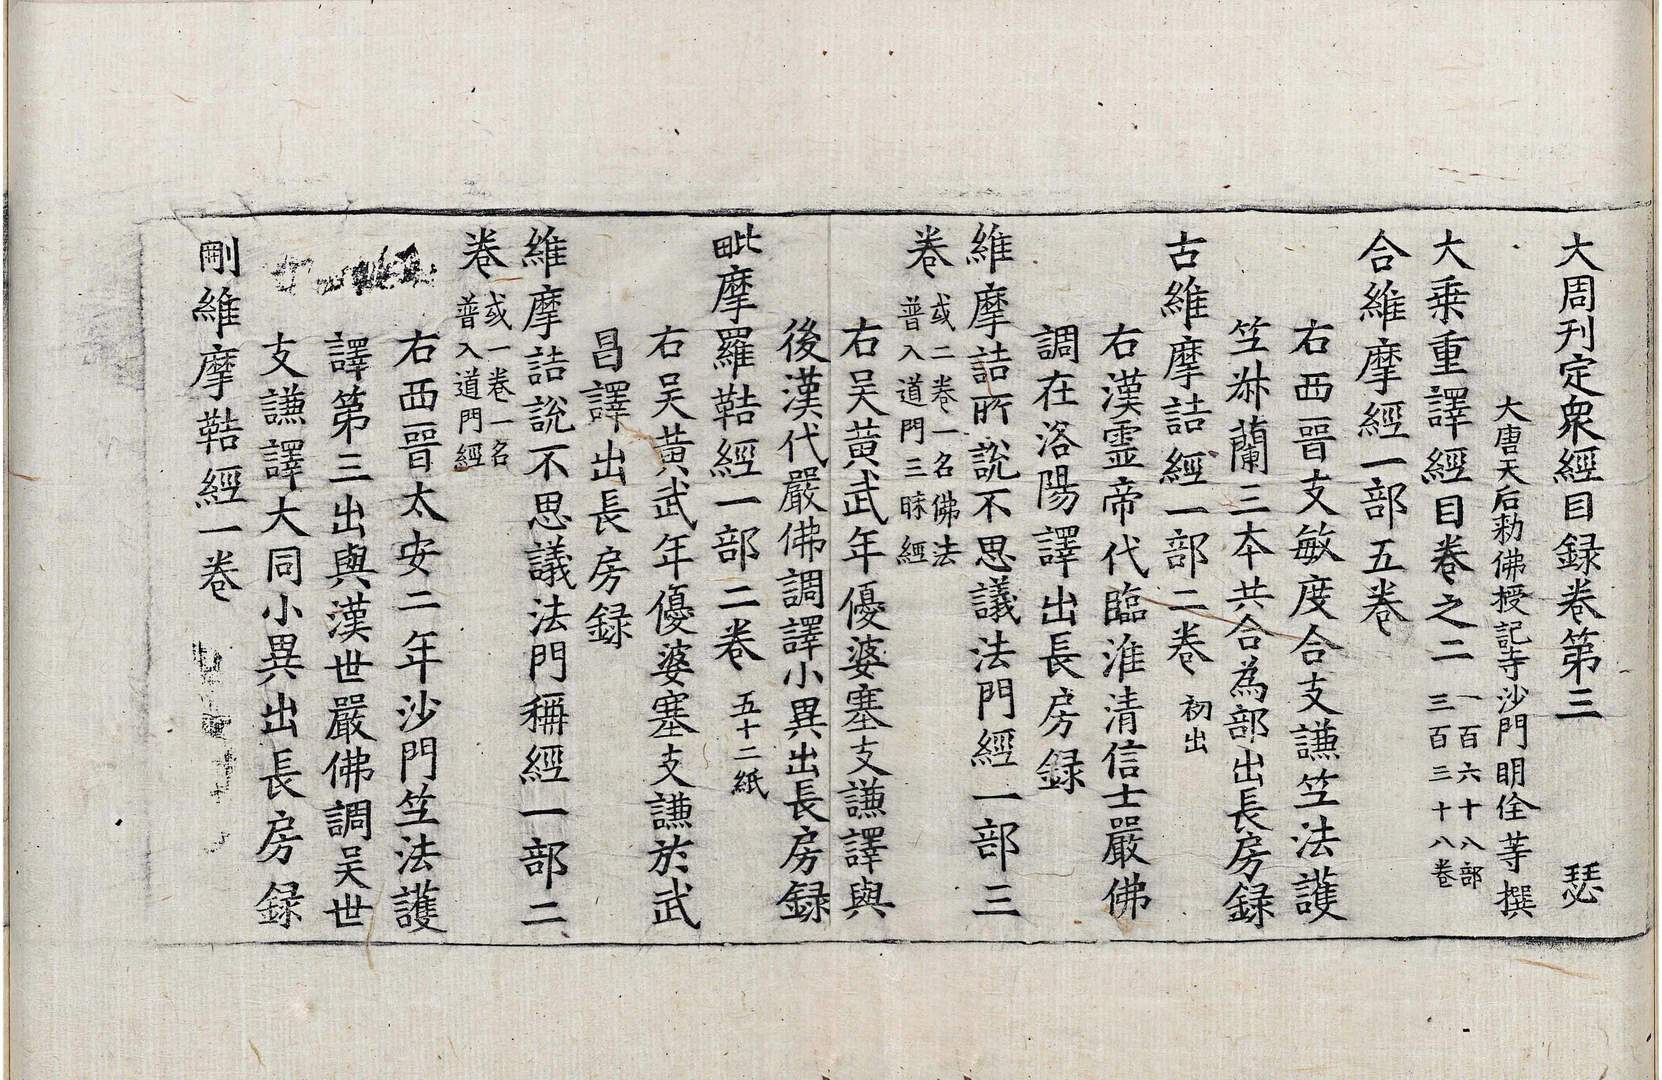 大周刊定衆經目録卷第三 瑟
大唐天后勑佛授記寺沙門明佺等撰
大乗重譯經目卷之二 一百六十八部三百三十八卷
合維摩經一部五卷
右西晉支敏度合支謙竺法護
竺叔蘭三本共合為部出長房録
古維摩詰經一部二卷 初出
右漢靈帝代臨淮清信士嚴佛
調在洛陽譯出長房録
維摩詰所說不思議法門經一部三
卷 或二卷一名佛法普入道門三昧經
右吴黃武年優婆塞支謙譯與
後漢代嚴佛調譯小異出長房録
毗摩羅鞊經一部二卷 五十二紙
右吴黃武年優婆塞支謙於武
昌譯出長房録
維摩詰說不思議法門稱經一部二
卷 或一卷一名普入道門經
右西晉太安二年沙門竺法護
譯第三出與漢世嚴佛調吴世
支謙譯大同小異出長房録
刪維摩鞊經一卷